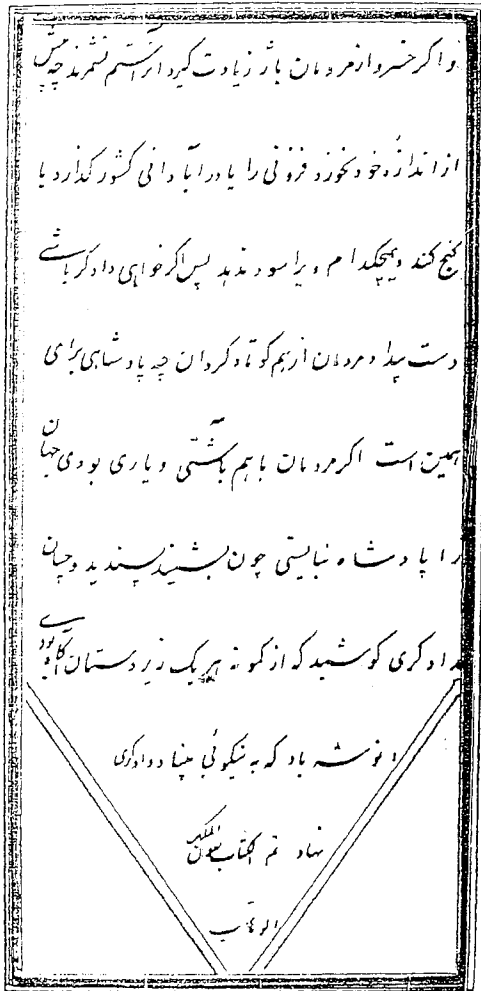 و اگر خسرو از مردمان باژ زیادت گیرد آنرا ستم نشمرند چه بیش
از اندازهٔ خود نخورد فزونی را یا در آبادانی کشور گذارد یا
گنج کند و هیچکدام ویرا سود ندهد پس اگر خواهی دادگر باشے
دست بیداد مردمان از هم کوتاه گردان چه پادشاهی برای
همین است اگر مردمان با هم بآشتی و یاری بودی جهان
را پادشاه نبایستی چون بشنید پسندید و چنان
بدادگری کوشید که از گونه هر یک زیردستان آگاه بودے
انوشه باد که به نیکوئی بنیاد دادگری
نهاد تم الکتاب بعون الملک
الوهاب